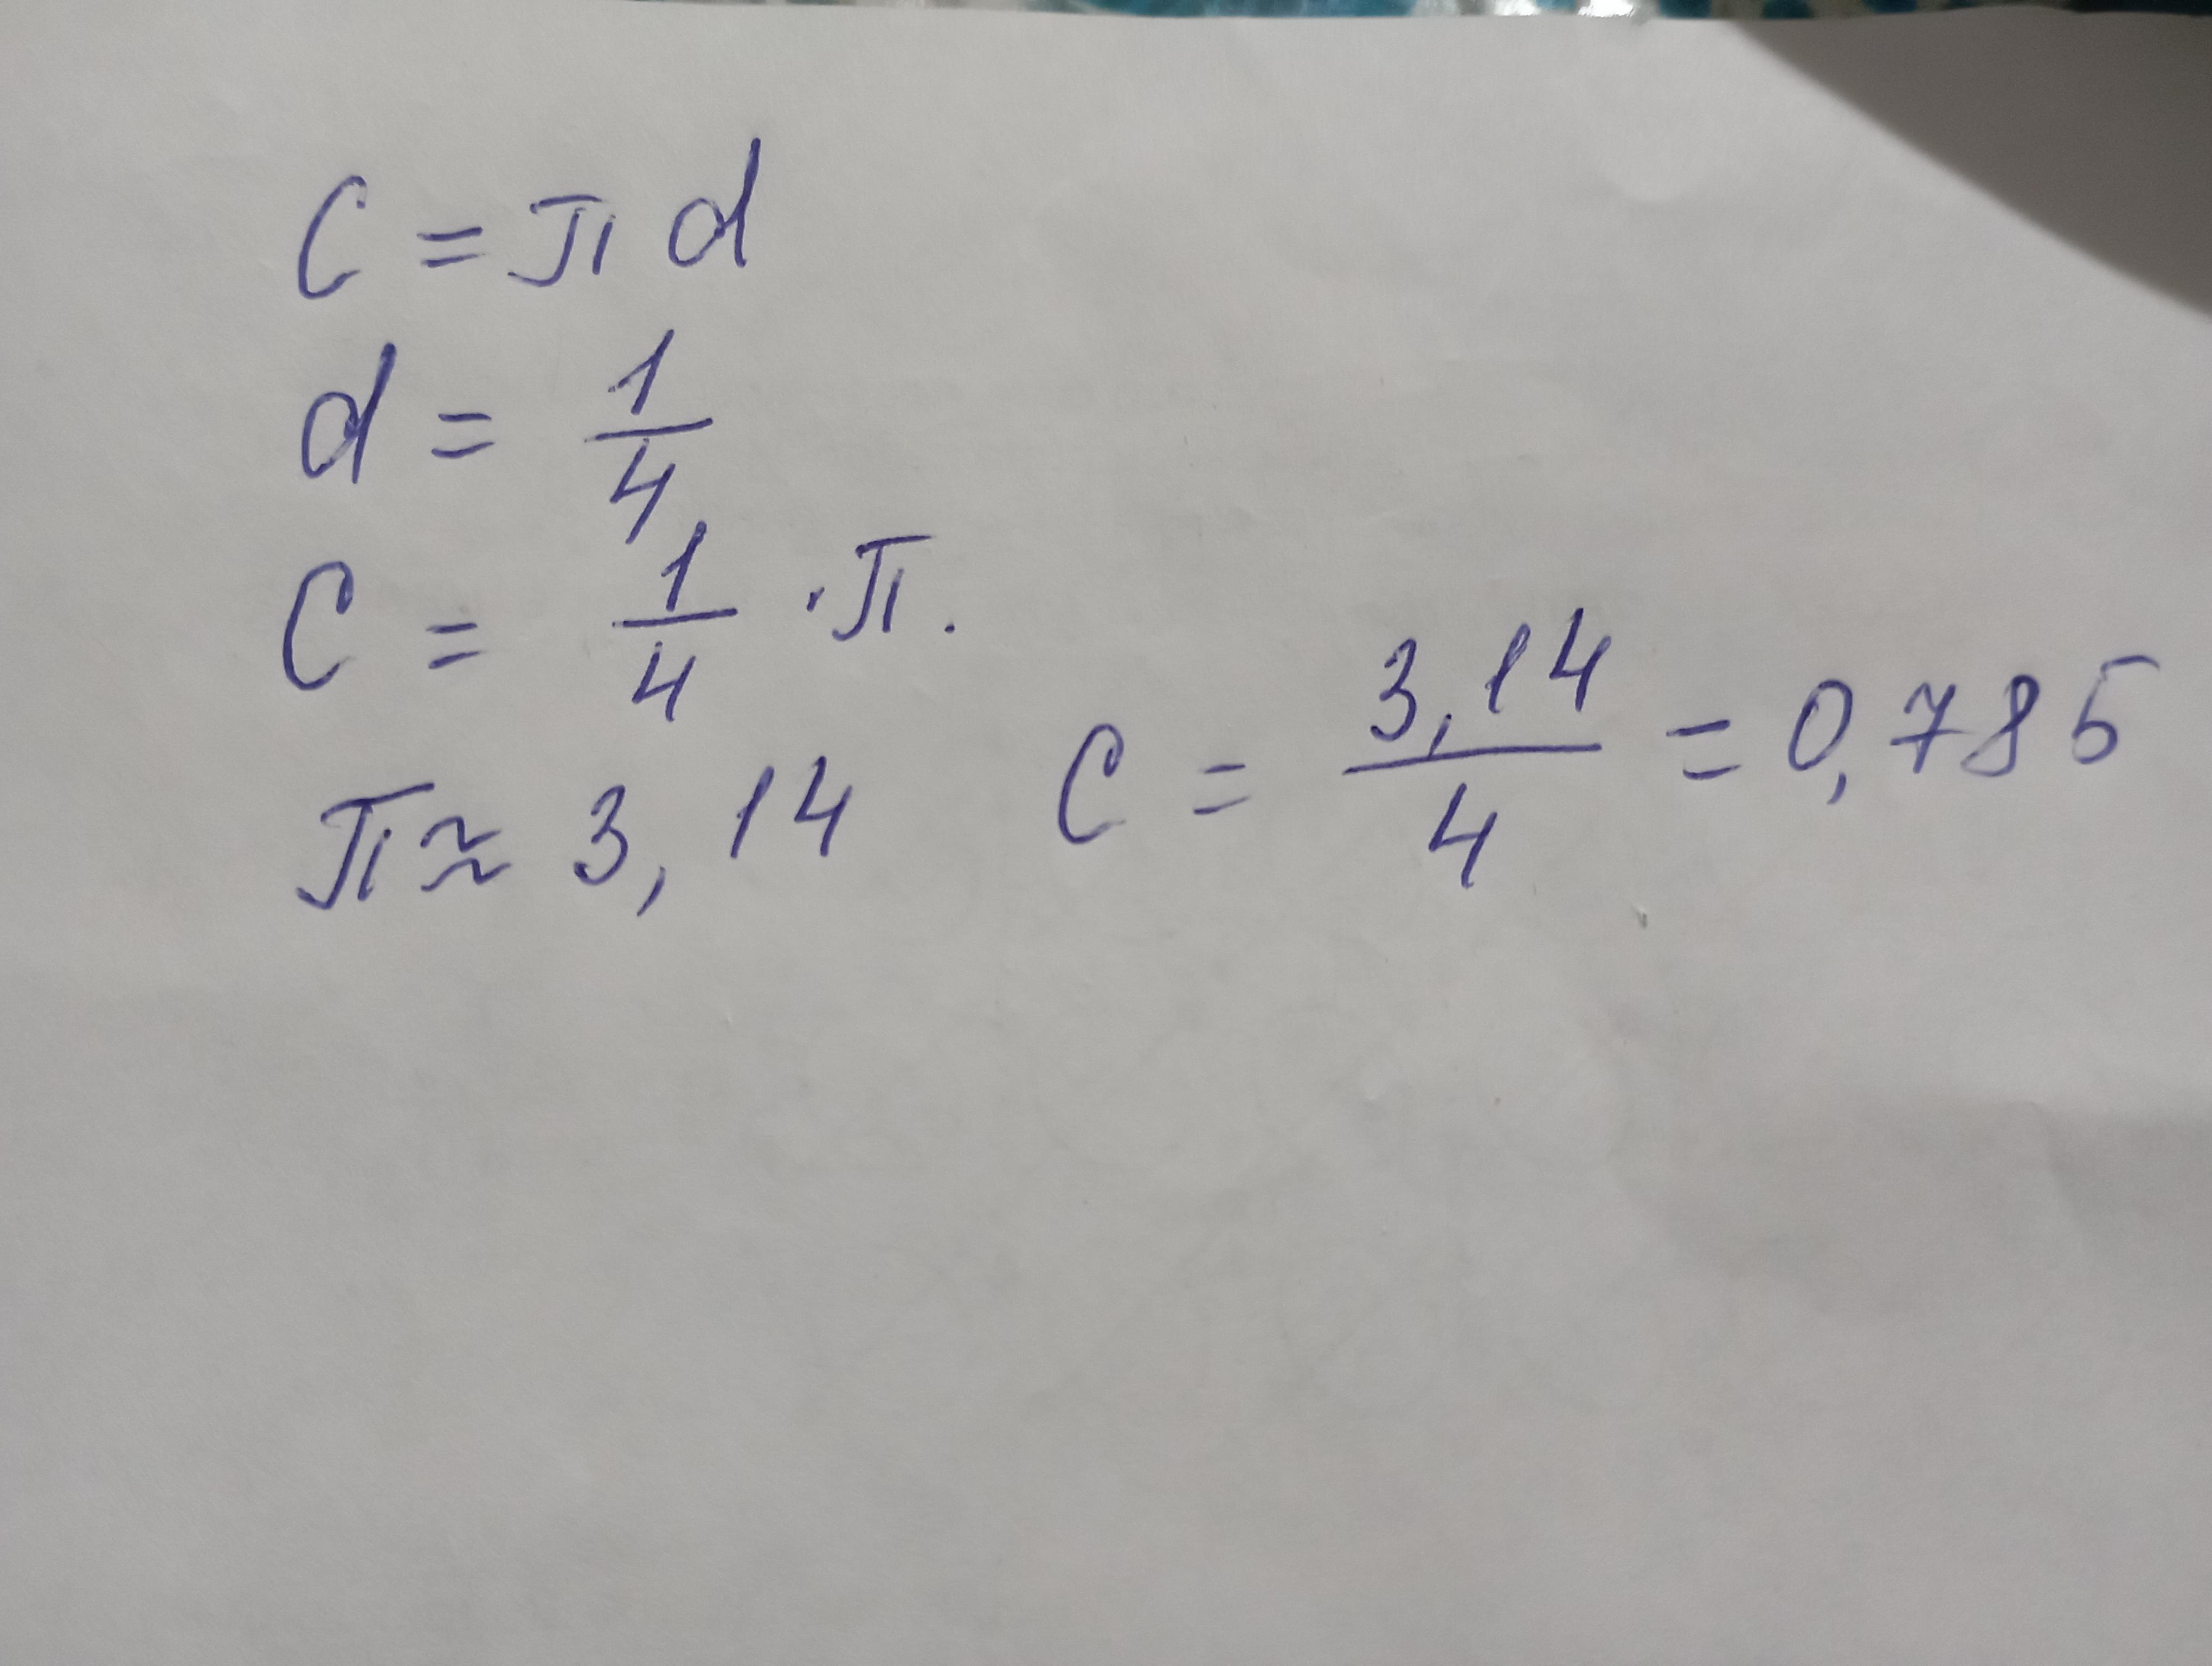 C = π d
d = 1/4
C = 1/4 · π.
π ≈ 3,14
C = 3,14/4 = 0,785